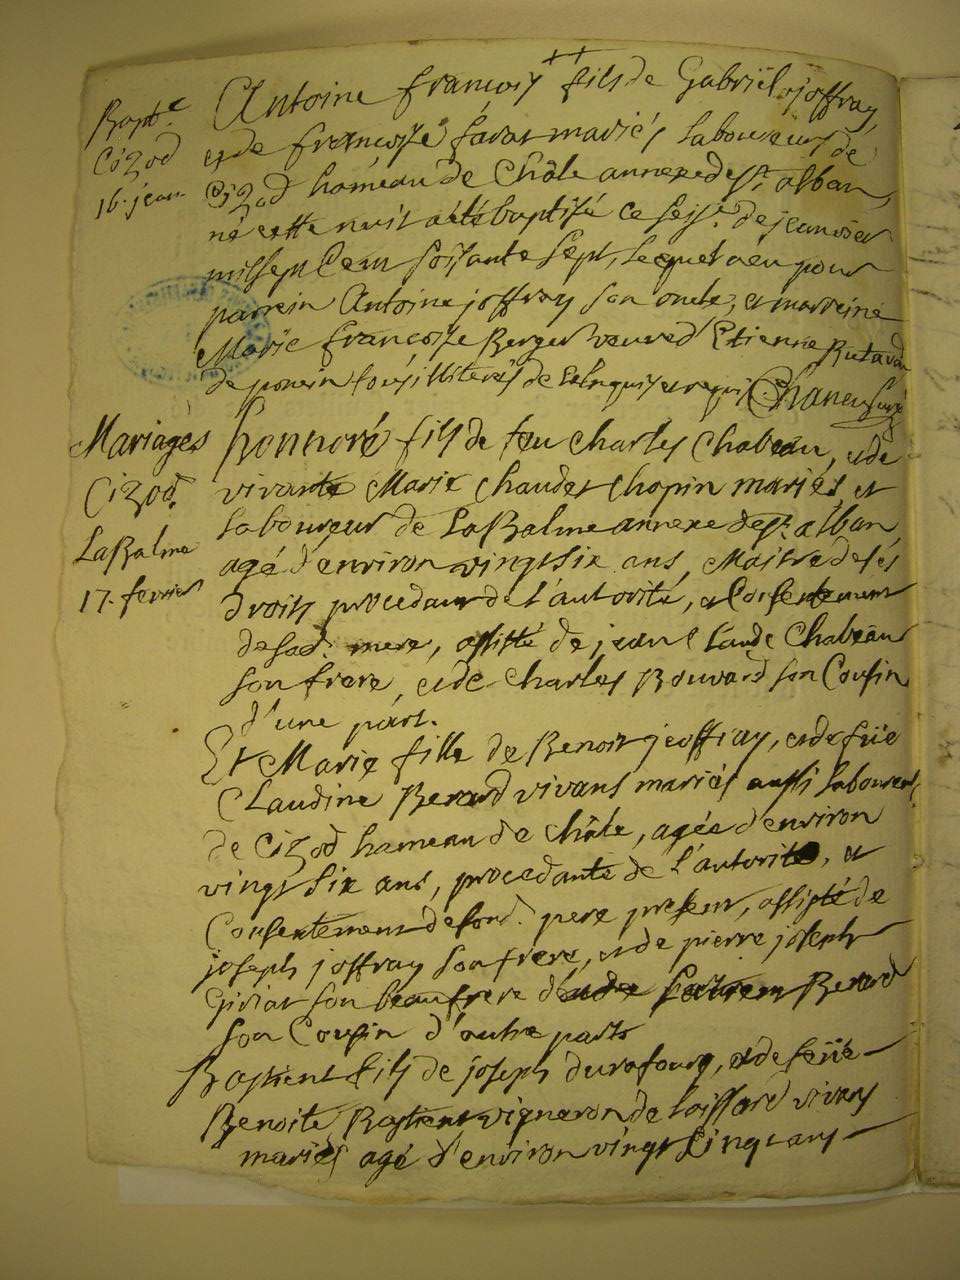 Bapt.e
Cizod
16. jean.
Antoine françois ++ fils de Gabriël joffray,
et de françoise favar mariés laboureurs de
Cizod hameau de Châle annexe de st. alban,
né cette nuit a été baptisé ce seise. de jeanvier
mil sept Cent soisante sept, lequel a eu pour
parrein Antoine joffray son oncle, et marreine
Marie françoise Berger veuve d'Etienne Rutavd
de poncin tous illiterés de ce enquis et requis Chaneu curé
Mariages
Cizod.
La Balme
17. fevrier
honnoré fils de feu Charles Chabeau, et de
vivante Marie Chaudet Chopin mariés, et
laboureur de La Balme annexe de st. alban,
agé d'environ vingt six ans, Maître de sés
droits procedant de l'autorité, et Consentement
de sad. mere, assisté de jean Claude Chabeau
son frere, et de Charles Bouvard son Cousin
d'une part.
Et Marie fille de Benoit jeoffray, et de füe
Claudine Berard vivans mariés aussi laboureur
de Cizod hameau de Châle, agée d'environ
vingt six ans, procedante de l'autorité, et
Consentement de sond. pere present, assistée de
joseph joffray son frere, et de pierre joseph
Giriat son beaufrere Berard
son Cousin d'autre parts
Bastient fils de joseph durafourg, et de feüe
Benoite Bastient vigneron de loissard vivans
mariés agé d'environ vingt Cinq ans